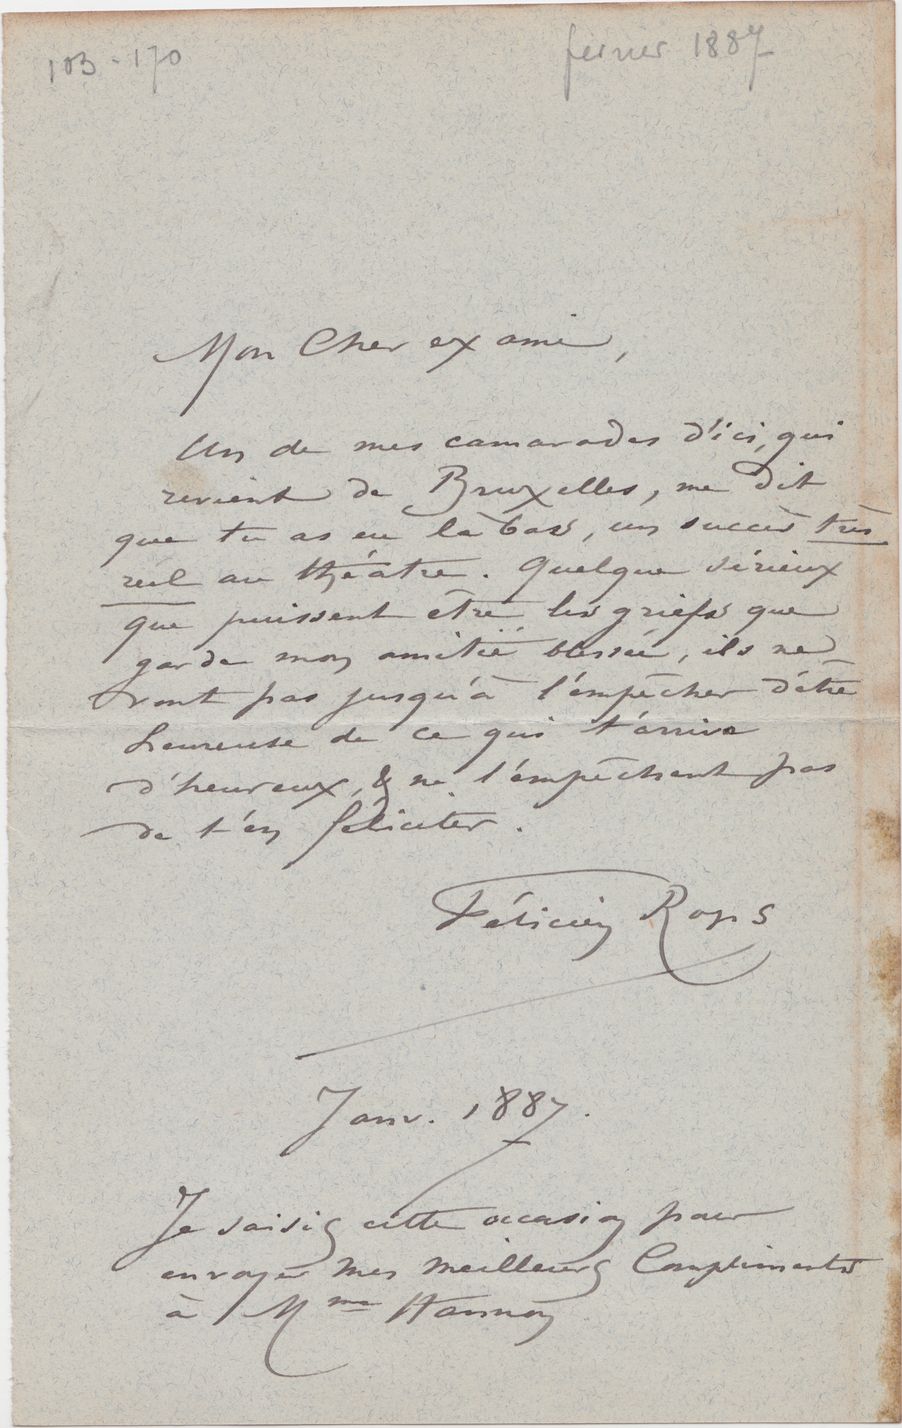 103-170
février 1887
Mon Cher ex ami,
Un de mes camarades d'ici, qui
revient de Bruxelles, me dit
que tu as eu là bas, un succès très
réel au théâtre. Quelque sérieux
que puissent être les griefs que
garde mon amitié blessée, ils ne
vont pas jusqu'à l'empêcher d'être
heureuse de ce qui t'arrive
d'heureux, & ne l'empêchent pas
de t'en féliciter.
Félicien Rops
Janv. 1887.
Je saisis cette occasion pour
envoyer mes meilleurs Compliments
à Mme Hannon